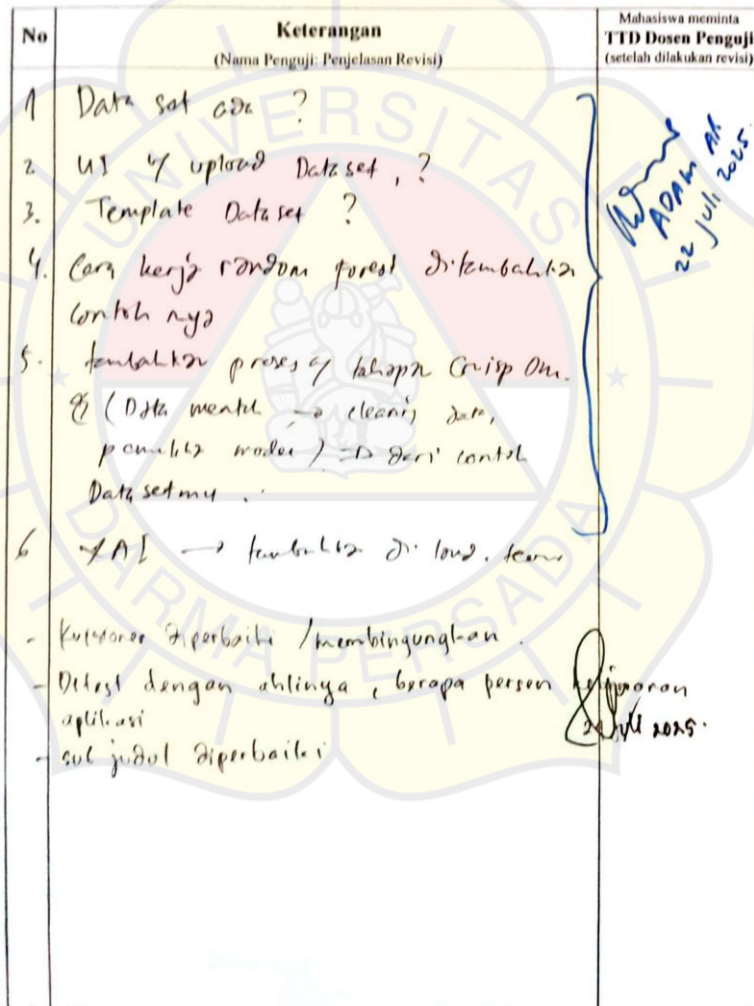 No
Keterangan
(Nama Penguji: Penjelasan Revisi)
Mahasiswa meminta
TTD Dosen Penguji
(setelah dilakukan revisi)
1 Data set ada ?
2. UI upload Dataset, ?
3. Template Dataset ?
4. Cara kerja random forest ditambahkan
contoh nya
5. tambahkan proses tahapan Crisp Dm.
(Data mentah → cleaning data,
pemilihan model) => dari contoh
Datasetmu .
6 XAI → tambahkan di land. teori
ADAM AR
22 Juli 2025.
- Kuesioner diperbaiki / membingungkan .
- Ditest dengan ahlinya , berapa persen
aplikasi
Juli 2025.
- sub judul diperbaiki
UNIVERSITAS
DARMA PERSADA